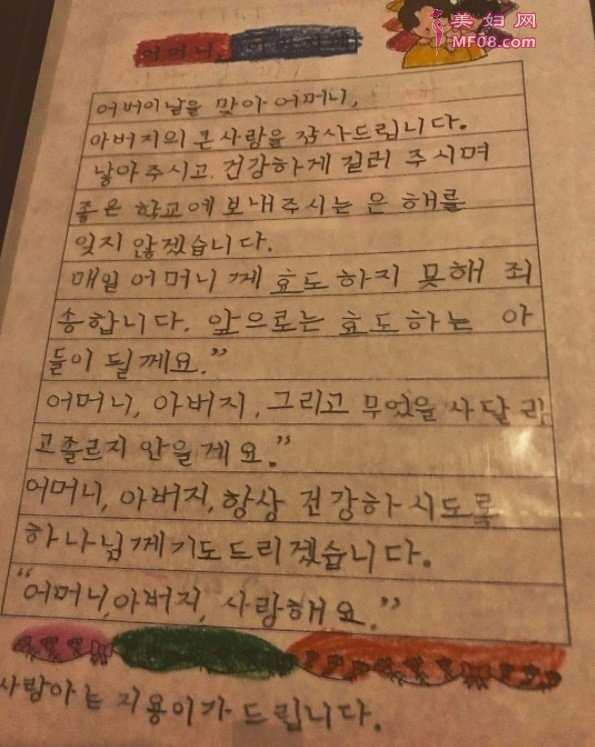 美妇网
MF08.com
어머니,
어버이날을 맞아 어머니,
아버지의 큰사랑을 감사드립니다.
낳아주시고, 건강하게 길러 주시며
좋은 학교에 보내주시는 은 해를
잊지 않겠습니다.
매일 어머니 께 효도 하지 못해 죄
송합니다. 앞으로는 효도하는 아
들이 될께요."
어머니, 아버지, 그리고 무엇을 사달라
고졸르지 안을게요."
어머니, 아버지, 항상 건강하시도록
하나님께기도드리겠습니다.
"어머니,아버지, 사랑해요."
지용이가 드립니다.